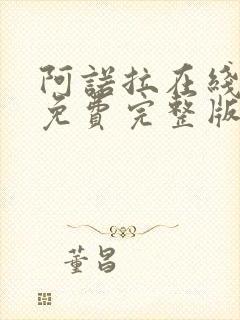 阿諾拉在綫
免費完整版
董昌